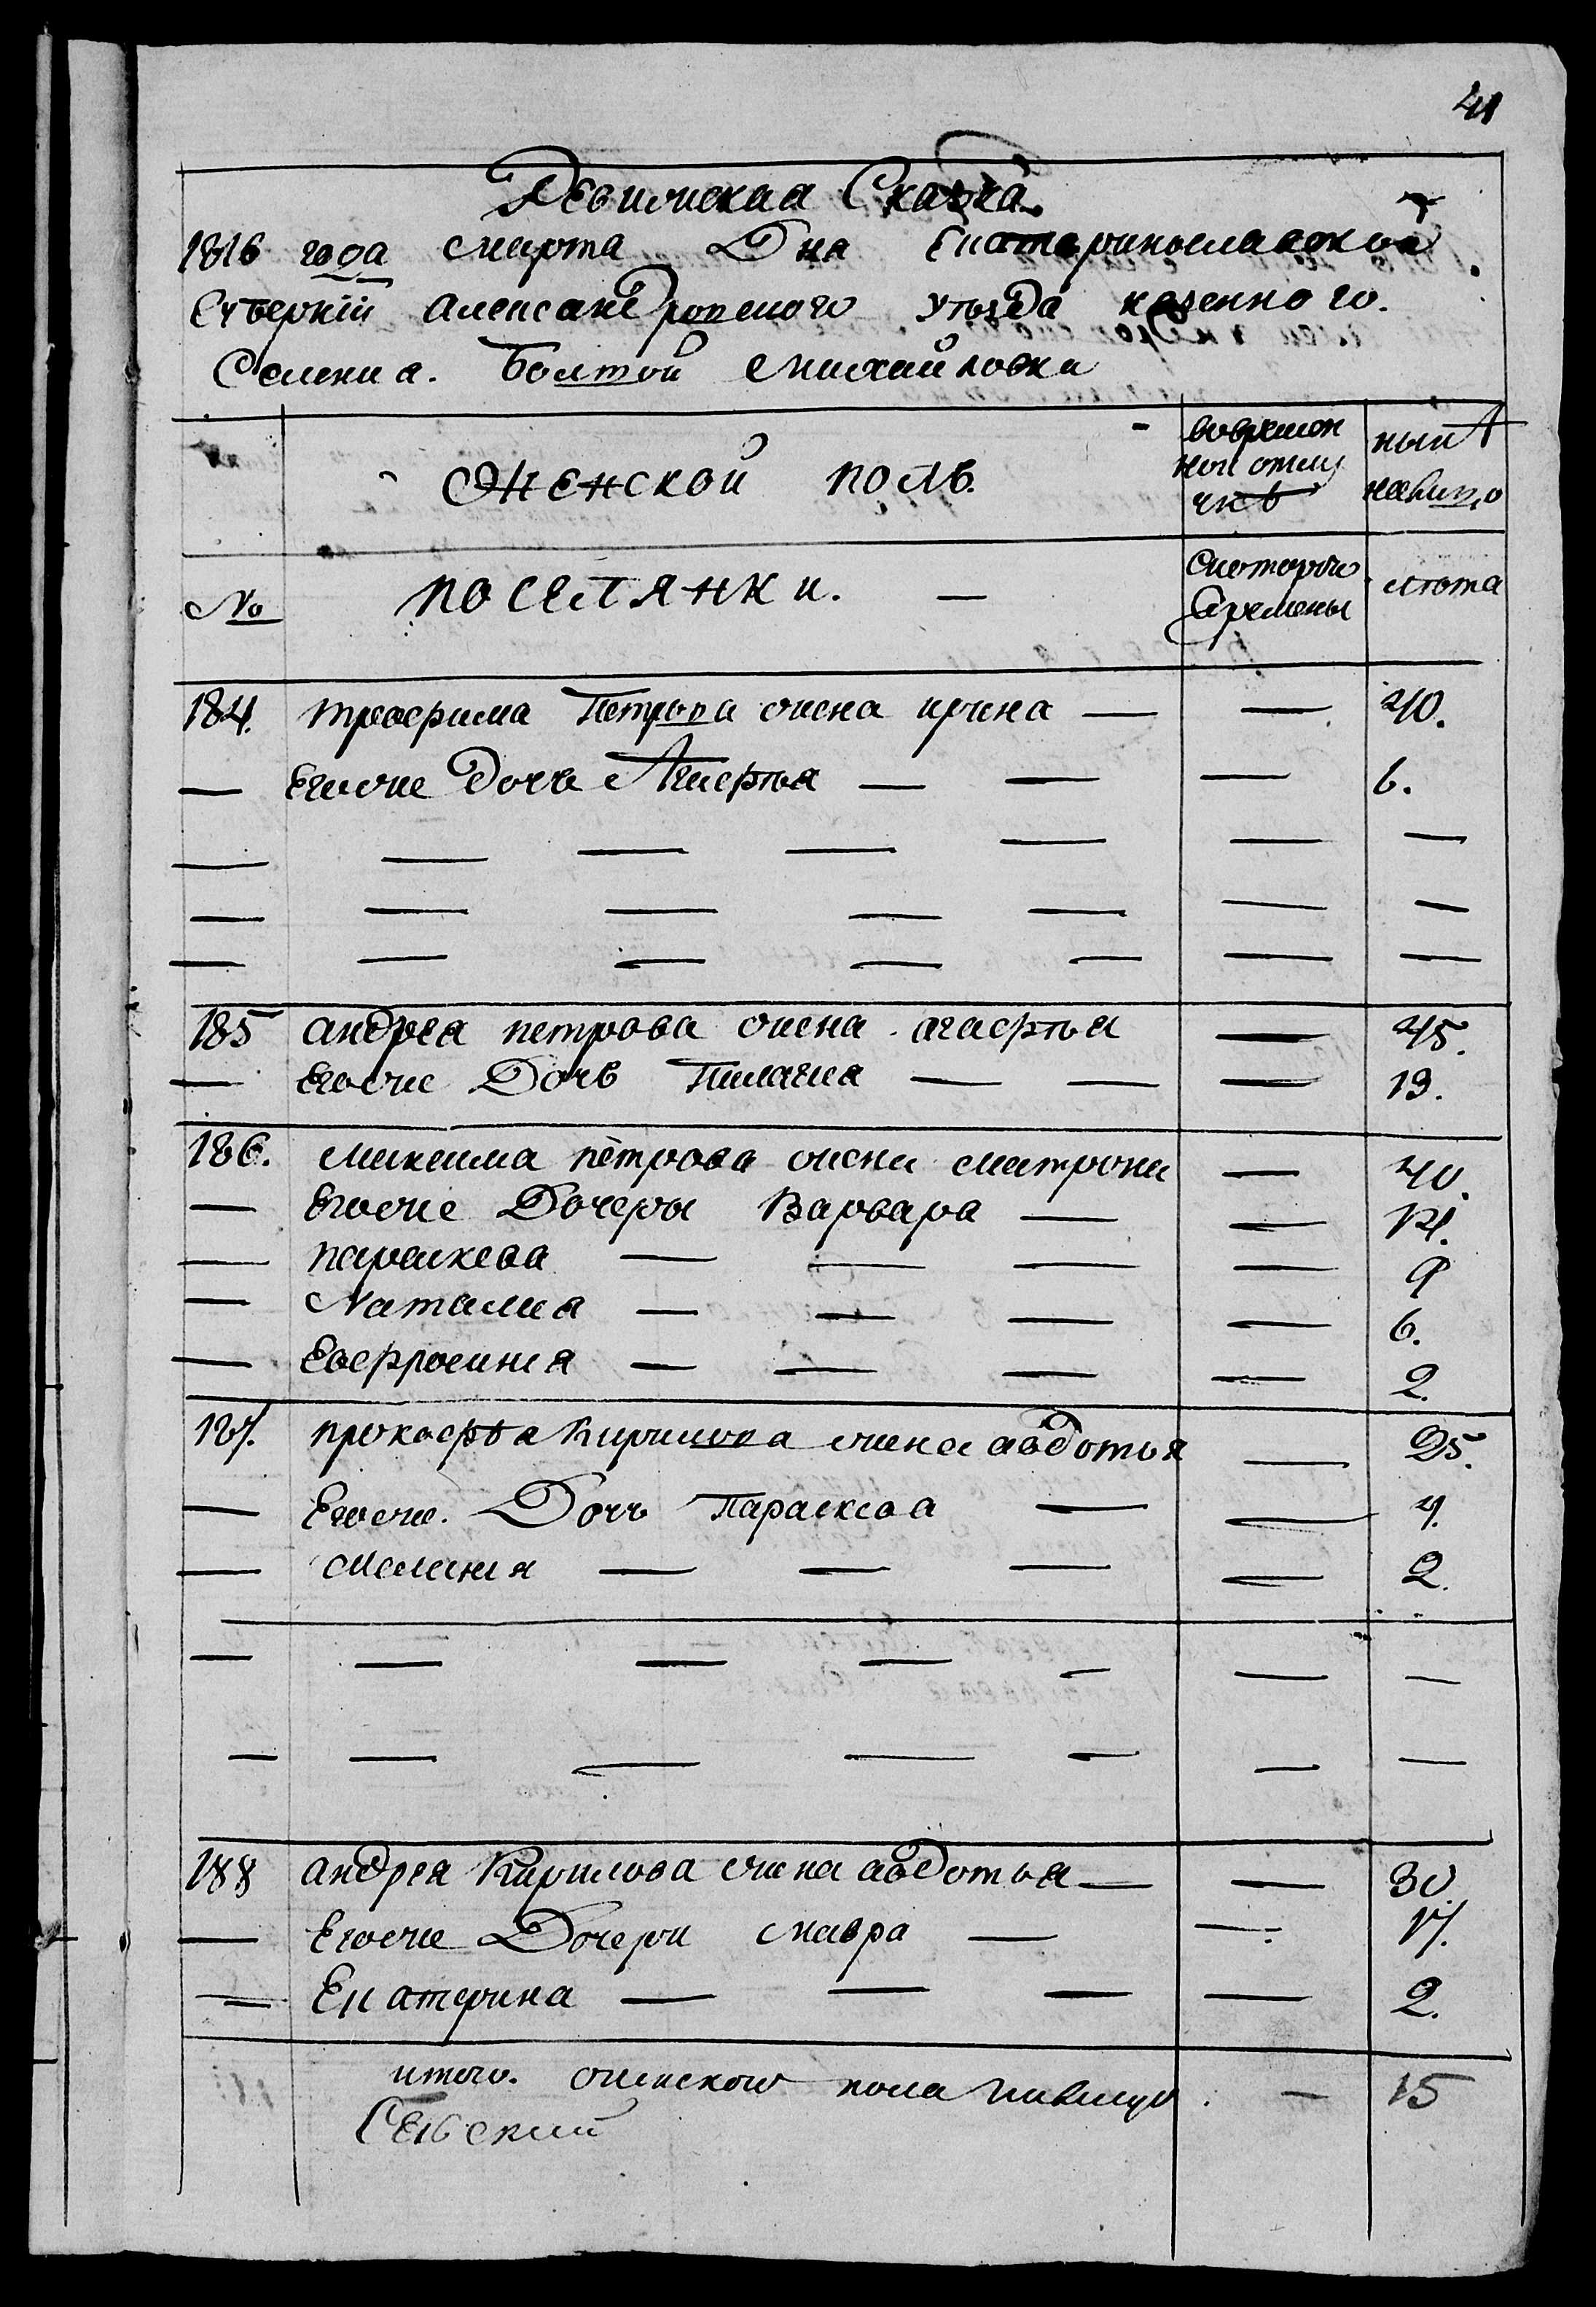 41
Ревижская Сказка.
1816 года Марта Дня Екатеринославской
Губерніи Александровского Уѣзда казенного.
Селения. Болшой Михайловки
Женской полъ.
во времен
ной отлу
чкѣ
ныиѣ
налицо
№
поселянки. —
Скоторого
времены
лѣта
184. трофима Петрова жена ирина — — 40.
— Егоже Дочь Агафья — — — 6.
— — — — — — —
— — — — — — —
— — — — — — —
185 андрея петрова жена агафья — 45.
— Егоже Дочь Пилагия — — — 13.
186. Максима петрова жена Матрона — 40.
— Егоже Дочеры Варвара — — 12.
— параскева — — — — 9
— Наталия — — — — 6.
— Евфросиния — — — — 2.
187. прокофѣа Кирилова жена авдотья — 25.
— Егоже. Дочь Параскева — — 4.
— Мелания — — — — 2.
— — — — — — —
— — — — — — —
188 андрея Кирилова жена авдотья — — 30
— Егоже Дочери Мавра — — 17.
— Екатерина — — — — 2.
итого. женского пола налицо — 15
Сельский